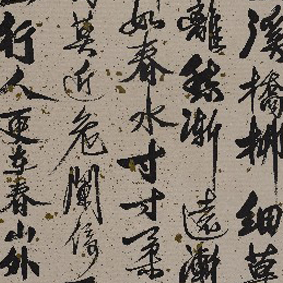 溪橋柳細草
離愁漸遠漸
如春水寸寸柔
莫近危闌倚
行人更在春山外